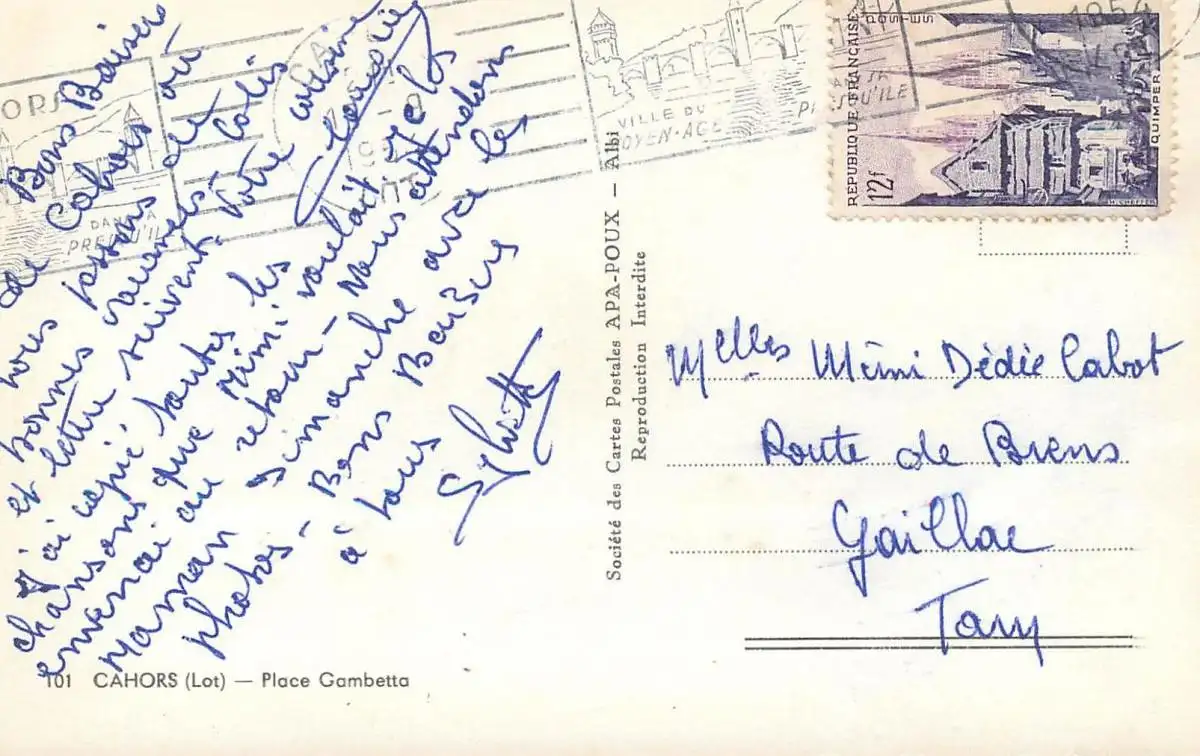 Bons Baisers
de Cahors où
nous passons de
bonnes vacances - Colis
et lettre suivent. Votre cousine
J'ai copié toutes les
chansons que Mimi voulait. Je les
enverrai au retour - Nous attendons
Maman dimanche avec les
photos - Bons Baisers
à tous
Sylvette
101 CAHORS (Lot) — Place Gambetta
Société des Cartes Postales APA-POUX — Albi
Reproduction Interdite
VILLE DU
MOYEN-AGE
DANS LA
PRESQU'ILE
1954
REPUBLIQUE FRANÇAISE
POSTES
12f
QUIMPER
Melles Mimi Dédée Cabot
Route de Brens
Gaillac
Tarn